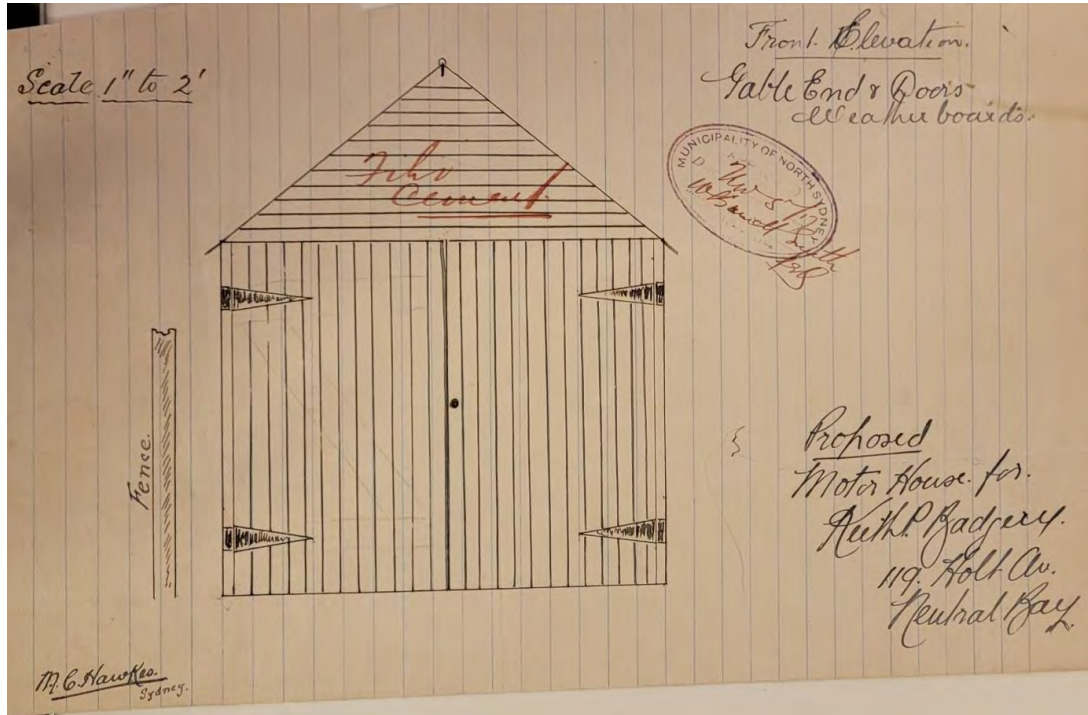 Scale 1" to 2'
Front Elevation.
Gable End & Doors
Weatherboards.
MUNICIPALITY OF NORTH SYDNEY
Fibro
Cement
Fence.
Proposed
Motor House for.
Keith P. Badgery.
119. Holt Av.
Neutral Bay.
M.C. Hawkes.
Sydney.